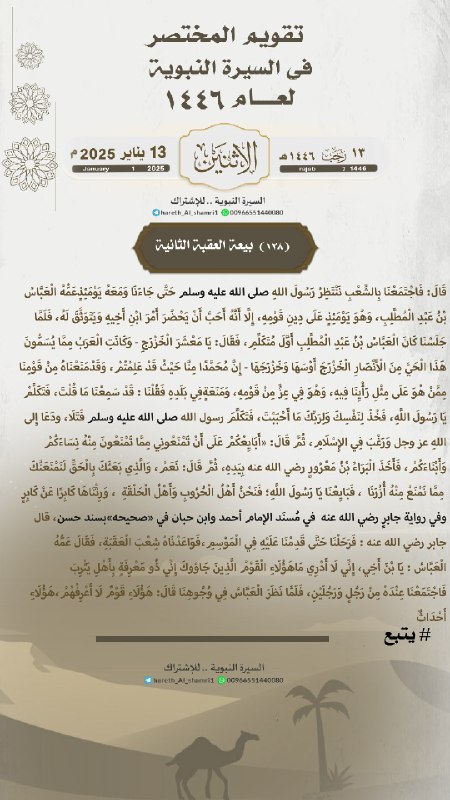 تقويم المختصر
في السيرة النبوية
لعـــام ١٤٤٦
١٣ رَجَب ١٤٤٦هـ
rajab 7 1446
الاثنين
13 يناير 2025 م
January 1 2025
السيرة النبوية .. للإشتراك
hareth_Al_shamri1 00966551440080
(١٢٨) بيعة العقبة الثانية
قَالَ: فَاجْتَمَعْنَا بِالشِّعْبِ نَنْتَظِرُ رَسُولَ اللهِ صلى الله عليه وسلم حَتَّى جَاءَنَا وَمَعَهُ يَوْمَئِذٍعَمُّهُ الْعَبَّاسُ
بْنُ عَبْدِ الْمُطَّلِبِ، وَهُوَ يَوْمَئِذٍ عَلَى دِينِ قَوْمِهِ، إِلَّا أَنَّهُ أَحَبَّ أَنْ يَحْضُرَ أَمْرَ ابْنِ أَخِيهِ وَيَتَوَثَّقَ لَهُ، فَلَمَّا
جَلَسْنَا كَانَ الْعَبَّاسُ بْنُ عَبْدِ الْمُطَّلِبِ أَوَّلَ مُتَكَلِّمٍ، فَقَالَ: يَا مَعْشَرَ الْخَزْرَجِ - وَكَانَتِ الْعَرَبُ مِمَّا يُسَمُّونَ
هَذَا الْحَيَّ مِنَ الْأَنْصَارِ الْخَزْرَجَ أَوْسَهَا وَخَزْرَجَهَا - إِنَّ مُحَمَّدًا مِنَّا حَيْثُ قَدْ عَلِمْتُمْ، وَقَدْمَنَعْنَاهُ مِنْ قَوْمِنَا
مِمَّنْ هُوَ عَلَى مِثْلِ رَأْيِنَا فِيهِ، وَهُوَ فِي عِزٍّ مِنْ قَوْمِهِ، وَمَنَعَةٍفِي بَلَدِهِ فَقُلْنَا : قَدْ سَمِعْنَا مَا قُلْتَ، فَتَكَلَّمْ
يَا رَسُولَ اللَّهِ، فَخُذْ لِنَفْسِكَ وَلِرَبِّكَ مَا أَحْبَبْتَ، فَتَكَلَّمَ رسول الله صلى الله عليه وسلم فَتَلَا، ودَعَا إِلَى
الله عز وجل وَرَغَّبَ فِي الإِسْلَامِ، ثُمَّ قَالَ: «أُبَايِعُكُمْ عَلَى أَنْ تَمْنَعُونِي مِمَّا تَمْنَعُونَ مِنْهُ نِسَاءَكُمْ
وَأَبْنَاءَكُمْ، فَأَخَذَ الْبَرَاءُ بْنُ مَعْرُورٍ رضي الله عنه بِيَدِهِ، ثُمَّ قَالَ: نَعَمْ، وَالَّذِي بَعَثَكَ بِالْحَقِّ لَنَمْنَعَنَّكَ
مِمَّا نَمْنَعُ مِنْهُ أُزُرَنَا ، فَبَايِعْنَا يَا رَسُولَ اللَّهِ؛ فَنَحْنُ أَهْلُ الْحُرُوبِ وَأَهْلُ الْحَلْقَةِ ، وَرِثْنَاهَا كَابِرًا عَنْ كَابِرٍ
وفي رواية جابرٍ رضي الله عنه في مُسنَد الإمام أحمد وابن حبان في «صحيحه»بسند حسن، قال
جابر رضي الله عنه : فَرَحَلْنَا حَتَّى قَدِمْنَا عَلَيْهِ فِي الْمَوْسِمِ،فَوَاعَدْنَاهُ شِعْبَ الْعَقَبَةِ، فَقَالَ عَمُّهُ
الْعَبَّاسُ : يَا بْنَ أَخِي، إِنِّي لَا أَدْرِي مَاهَؤُلَاءِ الْقَوْمُ الَّذِينَ جَاؤُوكَ إِنِّي ذُو مَعْرِفَةٍ بِأَهْلِ يَثْرِبَ
فَاجْتَمَعْنَا عِنْدَهُ مِنْ رَجُلٍ وَرَجُلَيْنِ، فَلَمَّا نَظَرَ الْعَبَّاسُ فِي وُجُوهِنَا قَالَ: هَؤُلَاءِ قَوْمٌ لَا أَعْرِفُهُمْ،هَؤُلَاءِ
أَحْدَاثٌ
# يتبع
السيرة النبوية .. للإشتراك
hareth_Al_shamri1 00966551440080